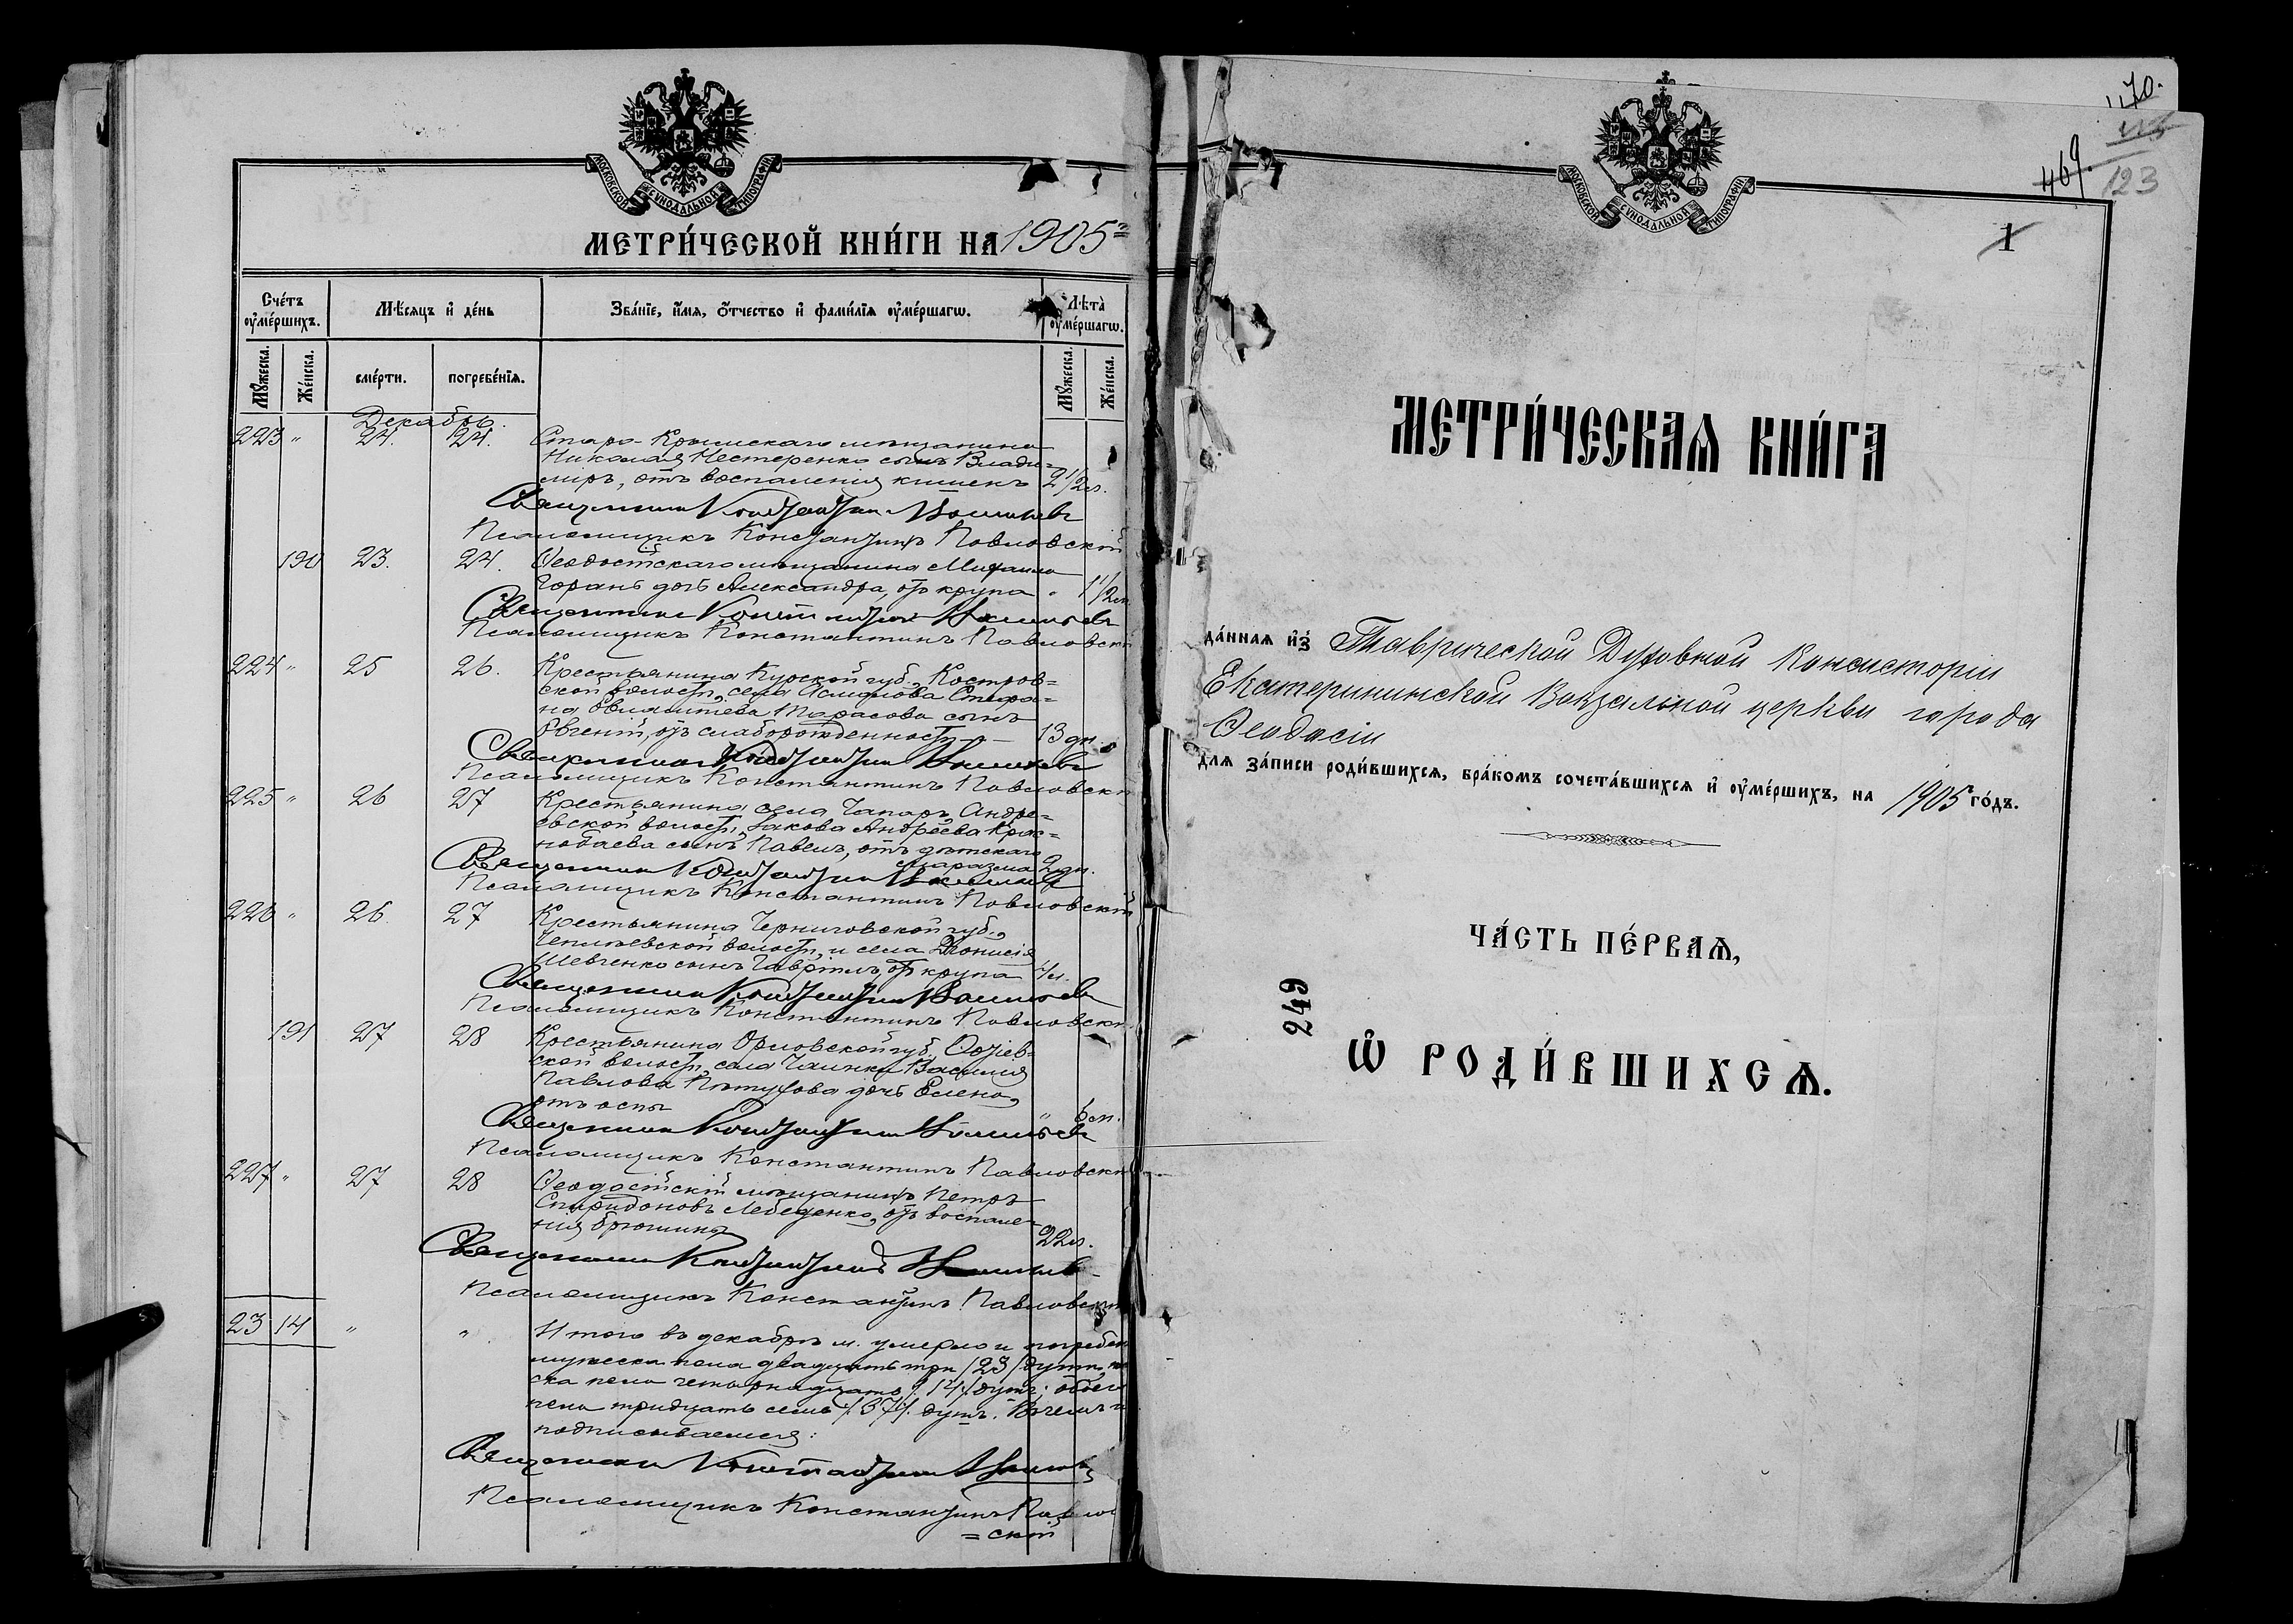 МОСКОВСКОЙ СѴНОДАЛЬНОЙ ТИПОГРАФІИ
МЕТРИ́ЧЕСКОЙ КНИ́ГИ НА 1905 г
Сче́тъ оу҆ме́ршихъ.
Мѣ́сяцъ и҆ де́нь
Зва́нїе, и҆́мѧ, ѻ҆́тчество и҆ фами́лїѧ оу҆ме́ршагѡ.
Лѣта̀ оу҆ме́ршагѡ.
Мꙋ́жеска.
Же́нска.
сме́рти.
погребе́нїѧ.
Мꙋ́жеска.
Же́нска.
Декабрь.
223 " 24. 24. Старо-Крымскаго мѣщанина
Николая Нестеренко сынъ Влади=
миръ, отъ воспаленія кишекъ 2 1/2 л.
Священникъ Константинъ
Псаломщикъ Константинъ Павловскій
190 23. 24. Ѳеодосійскаго мѣщанина Михаила
Горанъ дочь Александра, отъ крупа " 1 1/2 л.
Священникъ Константинъ
Псаломщикъ Константинъ Павловскі
224 " 25 26. Крестьянина Курской губ., Костров=
ской волости, села Асмолова Стефа=
на Тарасова сынъ
Евгеній, отъ слаборожденности 13 дн.
Священникъ Константинъ
Псаломщикъ Константинъ Павловскі
225 " 26 27 Крестьянина села Чапаръ, Андре=
евской волости, Іакова Андреева Крас=
нобаева сынъ Павелъ, отъ дѣтскаго
маразма 2 дн.
Священникъ Константинъ
Псаломщикъ Константинъ Павловскій
226 " 26. 27 Крестьянина Черниговской губ.,
волости, и села Діонисія
Шевченко сынъ Гавріилъ, отъ крупа 4 л.
Священникъ Константинъ
Псаломщикъ Константинъ Павловскі
191 27 28 Крестьянина Орловской губ.,
ской волости, села Василія
Павлова Пѣтухова дочь Елена,
отъ оспы " 6 м.
Священникъ Константинъ
Псаломщикъ Константинъ Павловскі
227 " 27 28 Ѳеодосійскій мѣщанинъ Петръ
Спиридоновъ Лебеденко, отъ воспале=
нія брюшины 22 л.
Священникъ Константинъ
Псаломщикъ Константинъ Павловскі
23 14 " " Итого въ декабрѣ м. умерло и погребен
мужеска пола двадцать три /23/ душъ, же
ска пола четырнадцать /14/ душъ; обоего
пола тридцать семь /37/ душъ. Въ чемъ и
подписываемся:
Священникъ Константинъ
Псаломщикъ Константинъ Павлов
=скій
170.
469.
123
МОСКОВСКОЙ СѴНОДАЛЬНОЙ ТИПОГРАФІИ
1
МЕТРИ́ЧЕСКАѦ КНИ́ГА
да́ннаѧ и҆з̾ Таврической Духовной Консисторіи
Екатерининской Вокзальной церкви города
Ѳеодосіи
для за́писи роди́вшихсѧ, бра́комъ сочета́вшихсѧ и҆ оу҆ме́ршихъ, на 1905 го́дъ.
ЧА́СТЬ ПЕ́РВАѦ,
249
Ѡ҆ РОДИ́ВШИХСѦ.